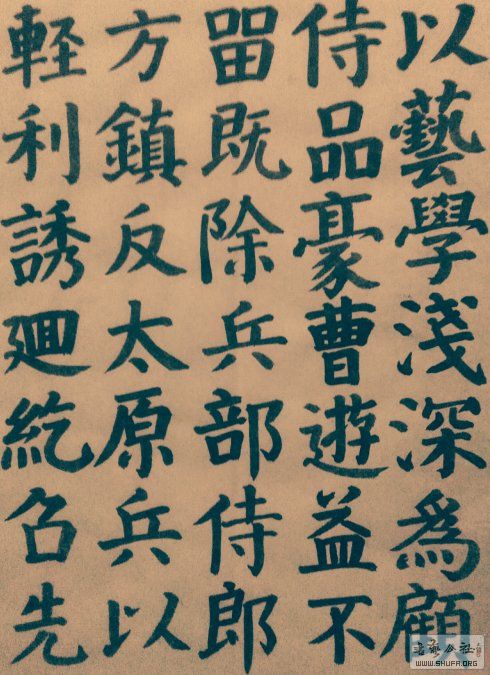 以藝學淺深爲顧
侍品豪曹遊益不
㽞既除兵部侍郎
方鎮反太原兵以
軽利誘廻紇召先
书艺公社
WWW.SHUFA.ORG